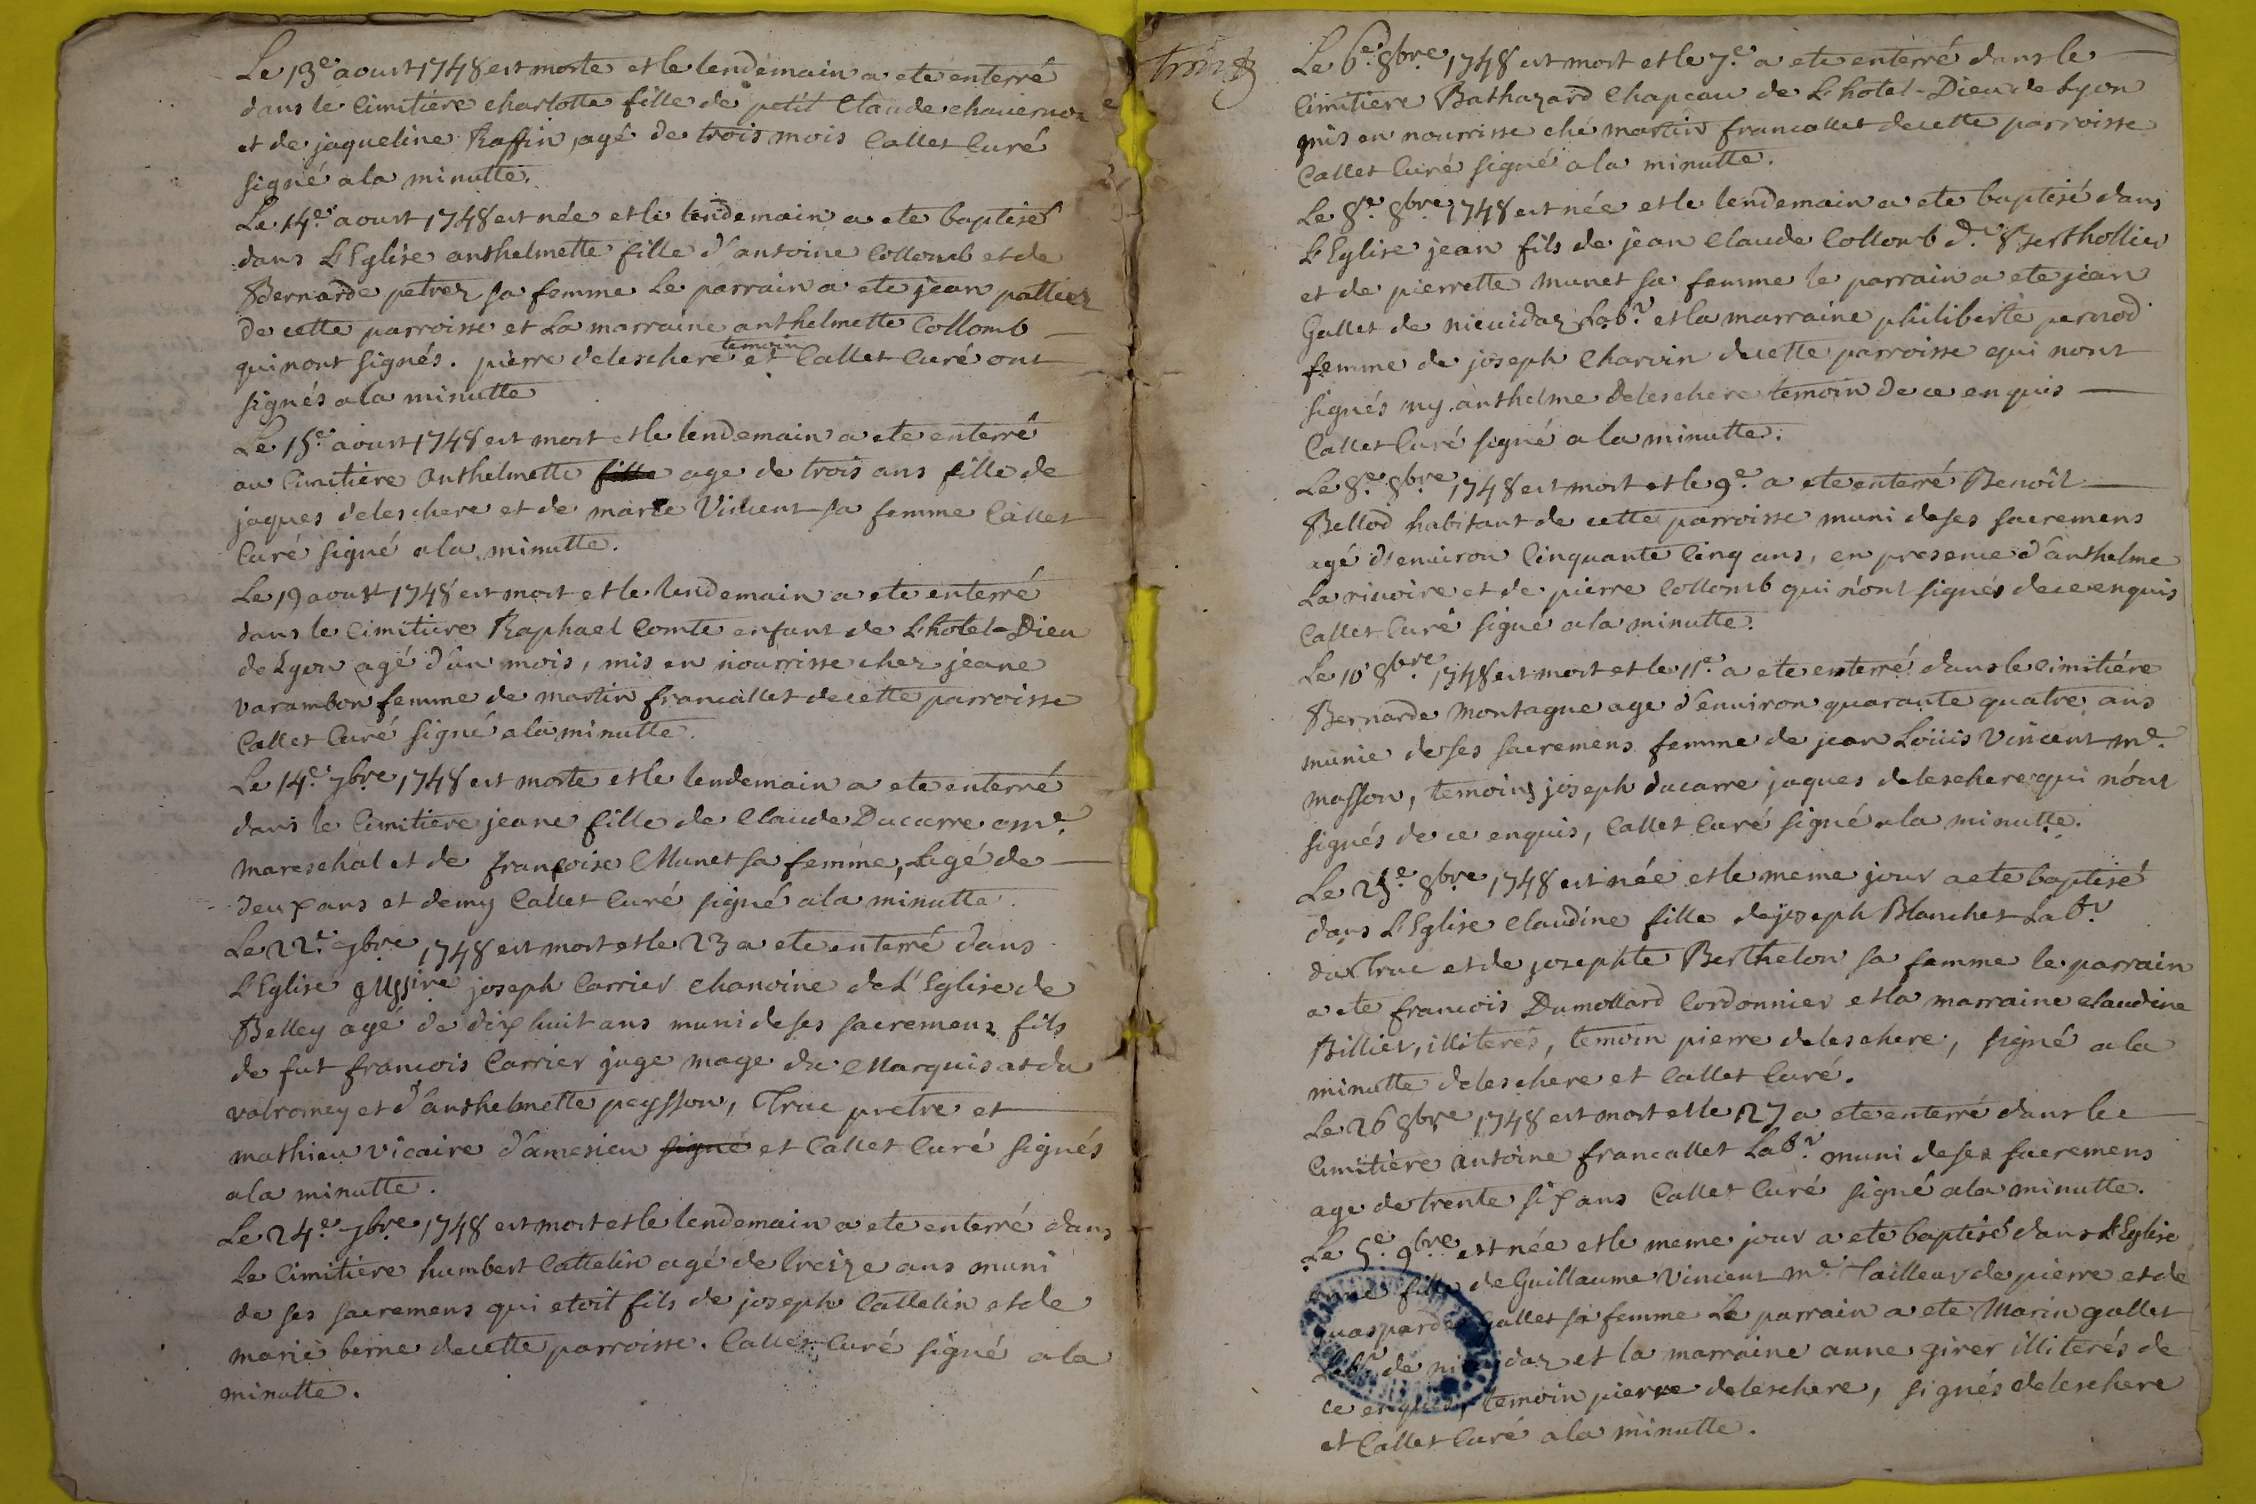 Le 13e aoust 1748 est morte et le lendemain a ete enterré
dans le Cimitiére charlotte fille de petit Claude chavernoz
et de jaqueline Raffin, agé de trois mois Callet Curé
signé a la minutte.
Le 14e aoust 1748 est née et le lendemain a ete baptisé
dans L'Eglise anthelmette fille d'antoine Collomb et de
Bernarde petrez sa femme Le parrain a ete jean palliez
de cette parroisse et La marraine anthelmette Collomb
qui nont signés. pierre deleschere temoin et Callet Curé ont
signés a la minutte
Le 15e aoust 1748 est mort et le lendemain a ete enterré
au Cimitiére Anthelmette fille age de trois ans fille de
jaques deleschere et de marie Vincent sa femme Callet
Curé signé a la minutte.
Le 19 aoust 1748 est mort et le lendemain a ete enterré
dans le Cimitiere Raphael Comte enfant de L'hotel-Dieu
de Lyon agé d'un mois, mis en nourrisse chez jeane
varambon femme de martin francallet de cette parroisse
Callet Curé signé a la minutte.
Le 14e 7bre 1748 est morte et le lendemain a ete enterré
dans le Cimitiere jeane fille de Claude Ducarre me.
mareschal et de françoise Munet sa femme, Agé de
deux ans et demy Callet Curé signé a la minutte.
Le 22e 7bre 1748 est mort et le 23 a ete enterré dans
L'Eglise Messire joseph Carrier chanoine de L'Eglise de
Belley agé de dix huit ans muni de ses sacremens fils
de fut francois Carrier juge mage du Marquisat du
valromey et d'anthelmette peysson, Truc pretre et
mathieu vicaire d'amesieu signé et Callet Curé signés
a la minutte.
Le 24e 7bre 1748 est mort et le lendemain a ete enterré dans
Le Cimitiere humbert Cattelin agé de treize ans muni
de ses sacremens qui etoit fils de joseph Cattelin et de
marie berne de cette parroisse. Callet Curé signé a la
minutte.
Le 6e 8bre 1748 est mort et le 7e a ete enterré dans le
Cimitiere Bathazard Chapeau de L'hotel-Dieu de Lyon
mis en nourrisse ché martin francallet de cette parroisse
Callet Curé signé a la minutte.
Le 8e 8bre 1748 est née et le lendemain a ete baptisé dans
L'Eglise jean fils de jean Claude Collomb d. Berthollier
et de pierrette munet sa femme le parrain a ete jean
Gallet de nieuidaz Labr et la marraine philiberte pernod
femme de joseph Charvin de cette parroisse qui nont
signés ny anthelme Deleschere temoin de ce enquis
Callet Curé signé a la minutte.
Le 8e 8bre 1748 est mort et le 9e a ete enterré Benoît
Bellod habitant de cette parroisse muni de ses sacremens
agé d'environ Cinquante Cinq ans, en presence d'anthelme
La rivoire et de pierre Collomb qui n'ont signés de ce enquis
Callet Curé signé a la minutte.
Le 10 8bre 1748 est mort et le 11e a ete enterré dans le cimitiére
Bernarde Montagne age d'environ quarante quatre ans
munie de ses sacremens femme de jean Loüis Vincent me.
masson, temoins joseph ducarre jaques deleschere qui n'ont
signés de ce enquis, Callet Curé signé a la minutte.
Le 25e 8bre 1748 est née et le meme jour a ete baptisé
dans L'Eglise Claudine fille de joseph Blanchet Labr
du Truc et de josephte Berthelon sa femme le parrain
a ete francois Dumollard Cordonnier et la marraine claudine
Billier, illiterés, temoin pierre deleschere, signé a la
minutte deleschere et Callet Curé.
Le 26 8bre 1748 est mort et le 27 a ete enterré dans le
Cimitière antoine francallet Labr muni de ses sacremens
age de trente six ans Callet Curé signé a la minutte.
Le 5e 9bre est née et le meme jour a ete baptisé dans L'Eglise
fille de Guillaume Vincent me Tailleur de pierre et de
guasparde Gallet sa femme Le parrain a ete Marin gallet
Labr de et la marraine anne girer illiterés de
ce enquis, temoin pierre deleschere, signés deleschere
et Callet Curé a la minutte.